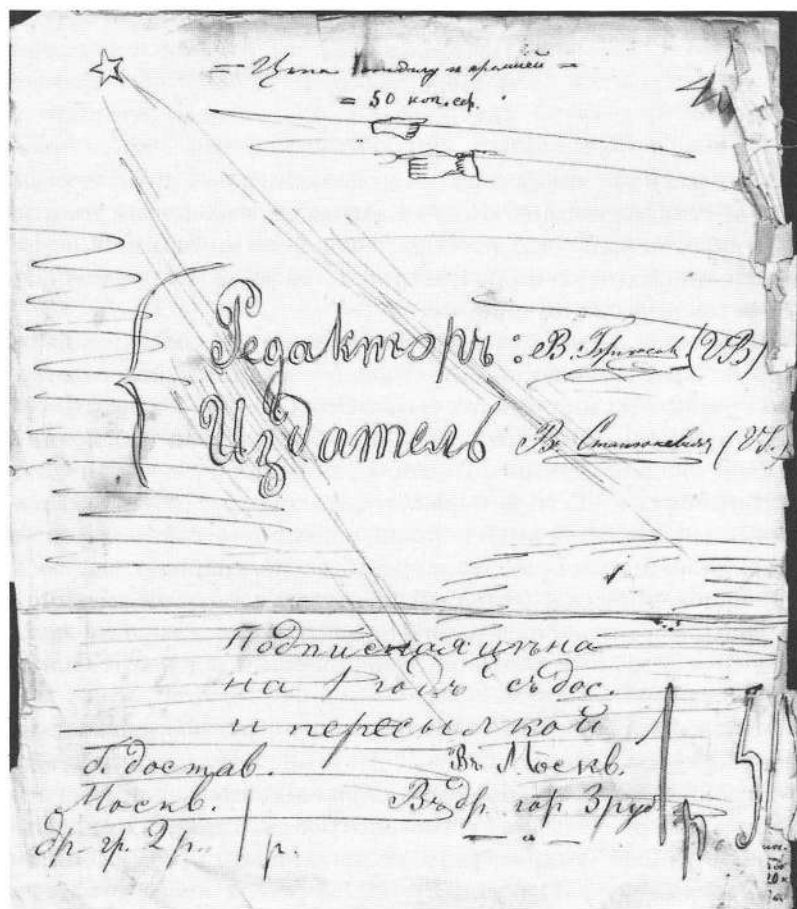 = Цѣна =
= 50 коп. сер.
Редакторъ: В. Брюсов (VB)
Издатель В. Станюкевичъ (VS.)
Подписная цѣна
на 1 годъ съ дос.
и пересылкой
достав. Въ Москв.
Москв. Въ др. гор 3 руб
др. гр. 2 р. 1 р. 1 р. 5